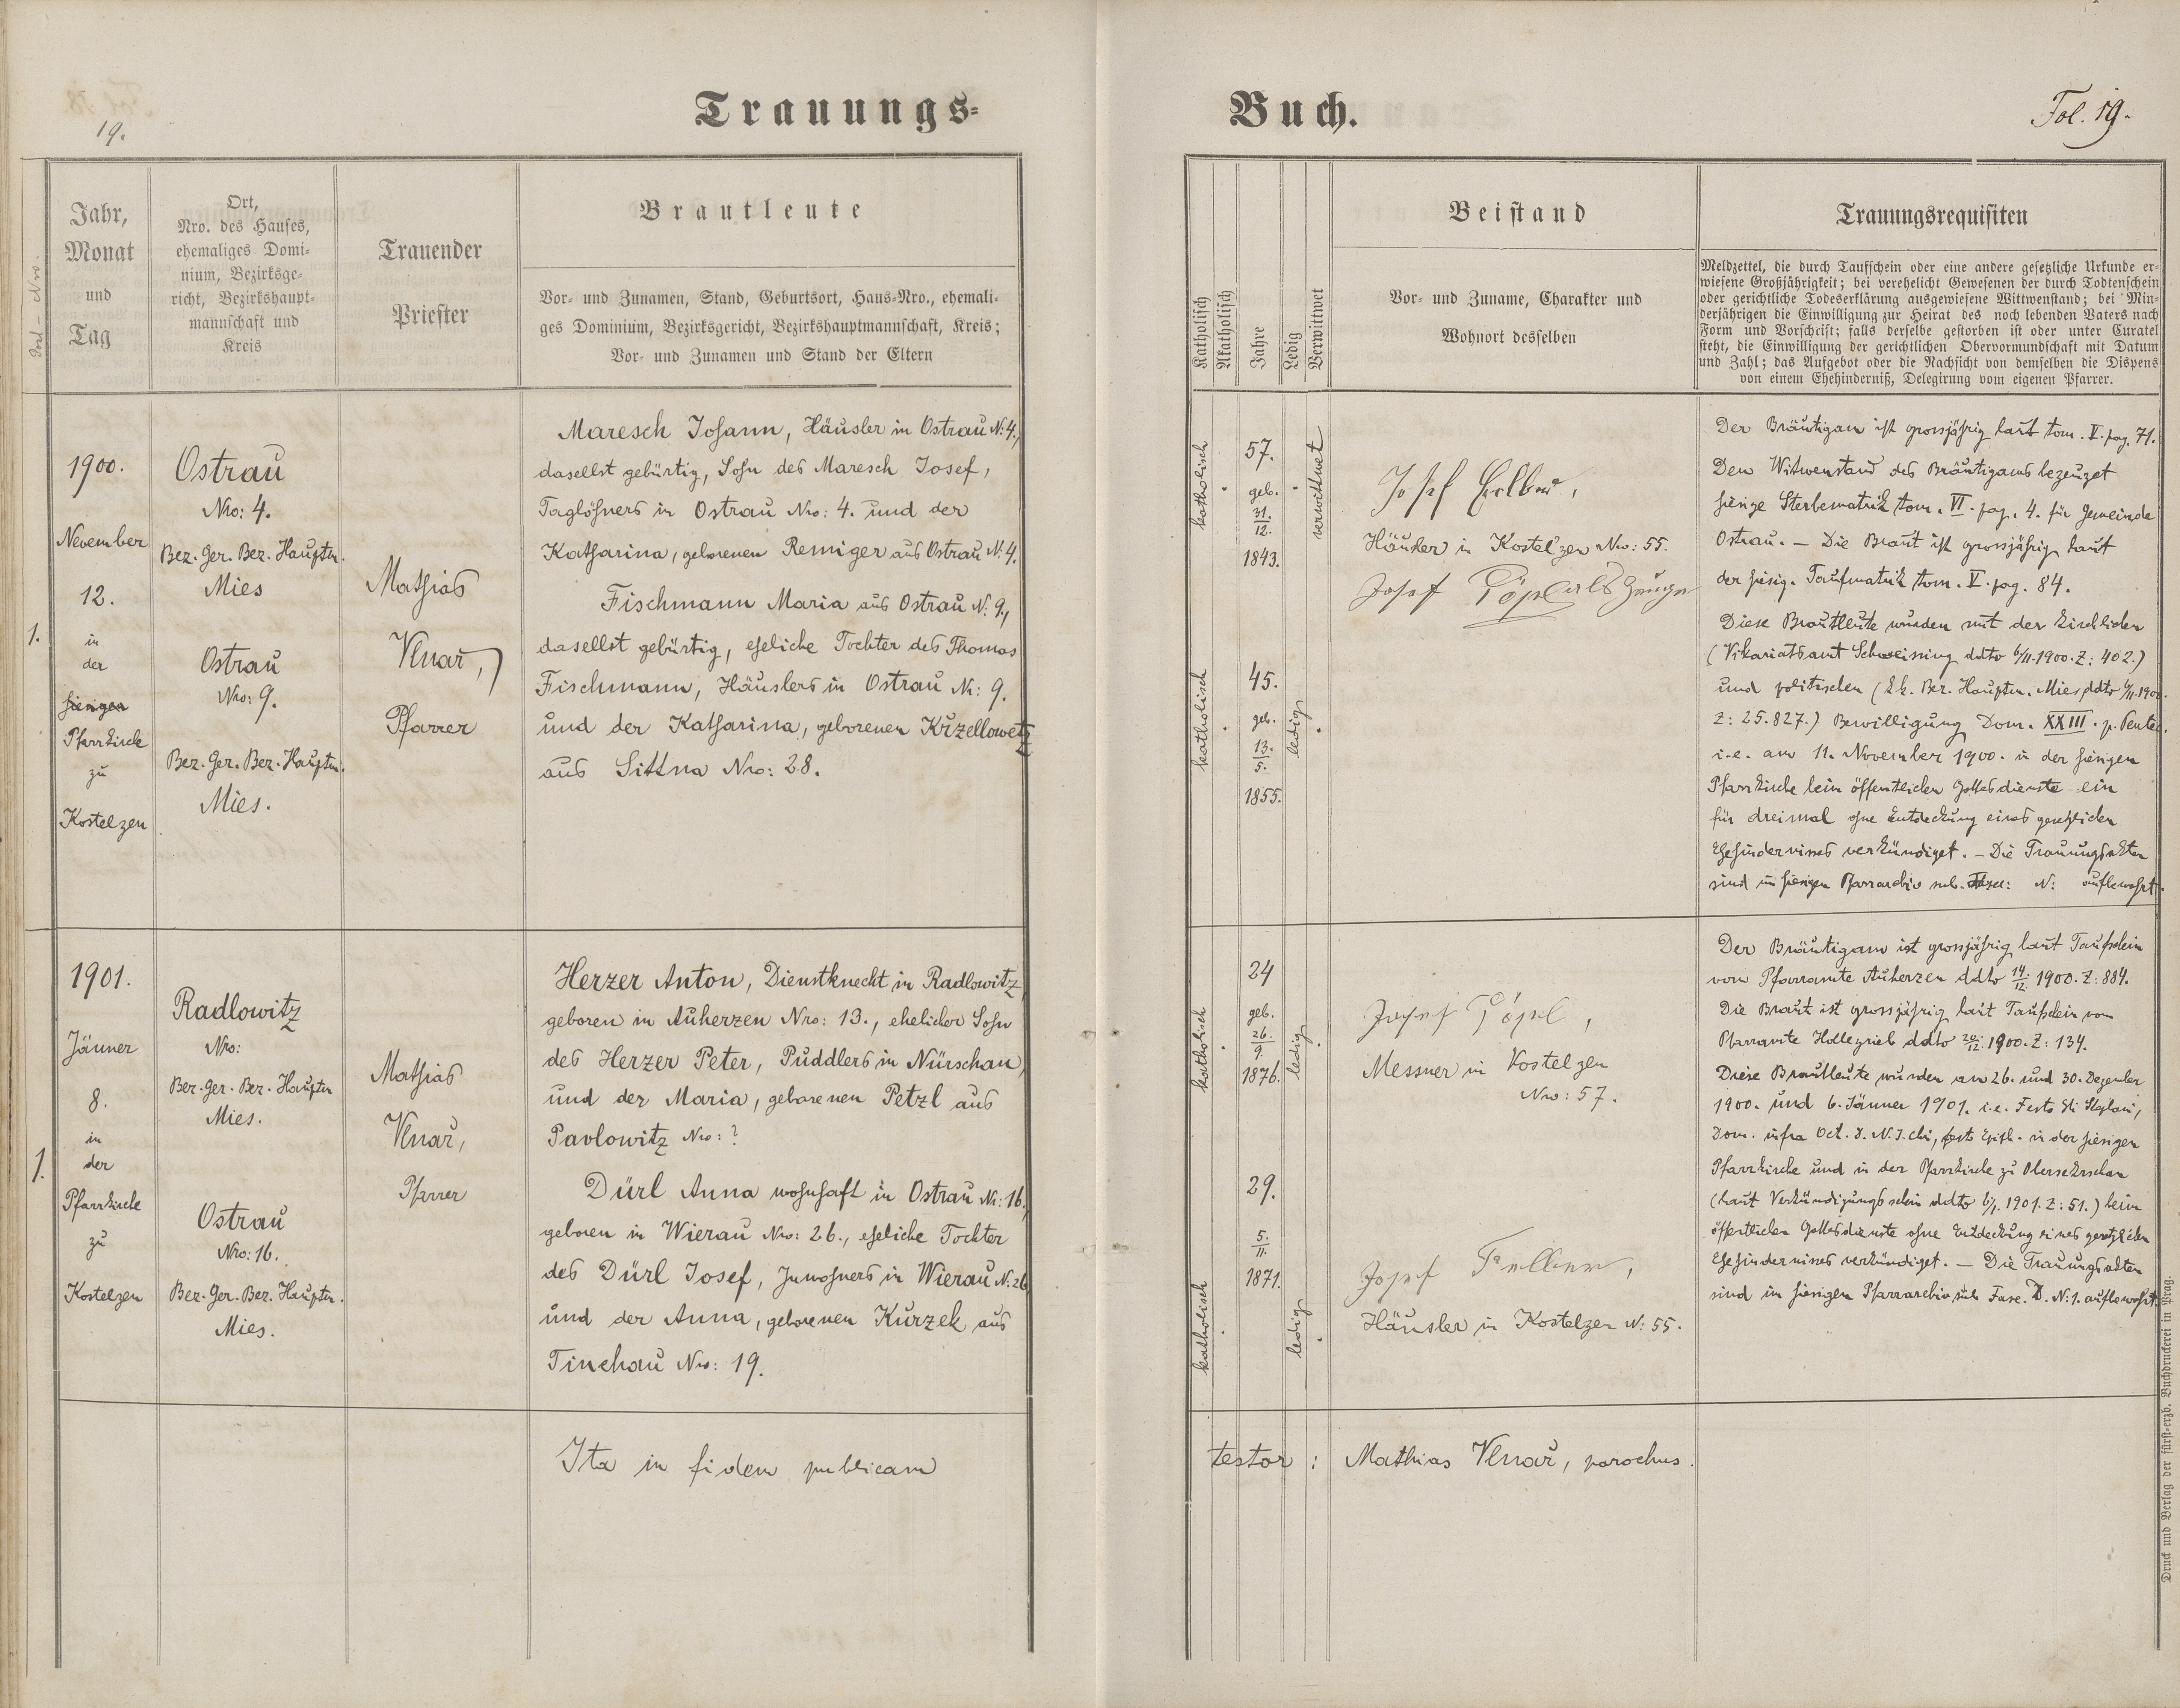 19.
Trauungs=
Buch.
Fol. 19.
Post-Nro.
Jahr,
Monat
und
Tag
Ort,
Nro. des Hauses,
ehemaliges Domi-
nium, Bezirksge-
richt, Bezirkshaupt-
mannschaft und
Kreis
Trauender
Priester
Brautleute
Vor- und Zunamen, Stand, Geburtsort, Haus-Nro., ehemali-
ges Dominium, Bezirksgericht, Bezirkshauptmannschaft, Kreis;
Vor- und Zunamen und Stand der Eltern
Katholisch
Akatholisch
Jahre
Ledig
Verwittwet
Beistand
Vor- und Zuname, Charakter und
Wohnort desselben
Trauungsrequisiten
Meldzettel, die durch Taufschein oder eine andere gesetzliche Urkunde er-
wiesene Großjährigkeit; bei verehelicht Gewesenen der durch Todtenschein
oder gerichtliche Todeserklärung ausgewiesene Wittwenstand; bei Min-
derjährigen die Einwilligung zur Heirat des noch lebenden Vaters nach
Form und Vorschrift; falls derselbe gestorben ist oder unter Curatel
steht, die Einwilligung der gerichtlichen Obervormundschaft mit Datum
und Zahl; das Aufgebot oder die Nachsicht von demselben die Dispens
von einem Ehehinderniß, Delegirung vom eigenen Pfarrer.
1.
1900.
November
12.
in
der
hiesigen
Pfarrkirche
zu
Kostelzen
Ostrau
Nro: 4.
Bez. Ger. Bez. Hauptm.
Mies
Ostrau
Nro: 9.
Bez. Ger. Bez. Hauptm.
Mies.
Mathias
Vlnař,
Pfarrer
Maresch Johann, Häusler in Ostrau N: 4.,
daselbst gebürtig, Sohn des Maresch Josef,
Taglöhners in Ostrau Nro: 4. und der
Katharina, geborenen Reiniger aus Ostrau N: 4.
Fischmann Maria aus Ostrau N. 9.,
daselbst gebürtig, eheliche Tochter des Thomas
Fischmann, Häuslers in Ostrau Nr: 9.
und der Katharina, geborenen Krzellowetz
aus Sittna Nro: 28.
katholisch
57.
geb.
31.
12.
1843.
verwittwet
katholisch
45.
geb.
13.
5.
1855.
ledig
Josef
Häusler in Kostelzen Nro: 55.
Josef Pöpl als Zeuge
Der Bräutigam ist grossjährig laut tom. V. pag. 71.
Den Witwenstand des Bräutigams bezeuget
hiesige Sterbematrik tom. VI. pag. 4. für Gemeinde
Ostrau. — Die Braut ist grossjährig laut
der hiesig. Taufmatrik tom. V. pag. 84.
Diese Brautleute wurden mit der kirchlichen
(Vikariatsamt Schweissing ddto 6/11.1900. Z: 402.)
und politischen (k.k. Bez. Hauptm. Mies ddto 6/11.1900.
Z: 25.827.) Bewilligung Dom. XXIII. p. Pentec.
i.e. am 11. November 1900. in der hiesigen
Pfarrkirche beim öffentlichen Gottesdienste ein
für dreimal ohne Entdeckung eines gesetzlichen
Ehehindernisses verkündiget. — Die Trauungsakten
sind im hiesigen Pfarrarchiv sub. N: aufbewahrt.
1.
1901.
Jänner
8.
in
der
Pfarrkirche
zu
Kostelzen
Radlowitz
Nro:
Bez. Ger. Bez. Hauptm
Mies.
Ostrau
Nro: 16.
Bez. Ger. Bez. Hauptm.
Mies.
Mathias
Vlnař,
Pfarrer
Herzer Anton, Dienstknecht in Radlowitz,
geboren in Auherzen Nro: 13., ehelicher Sohn
des Herzer Peter, Puddlers in Nürschau,
und der Maria, geborenen Petzl aus
Pavlowitz Nro: ?
Dürl Anna wohnhaft in Ostrau Nr: 16.,
geboren in Wierau Nro: 26., eheliche Tochter
des Dürl Josef, Inwohners in Wierau N: 26
und der Anna, geborenen Kurzek aus
Tinchau Nro: 19.
katholisch
24
geb.
26.
9.
1876.
ledig
katholisch
29.
5.
11.
1871.
ledig
Josef Pöpl,
Messner in Kostelzen
Nro: 57.
Josef Felber,
Häusler in Kostelzen N: 55.
Der Bräutigam ist grossjährig laut Taufschein
vom Pfarramte Auherzen ddto 14./12. 1900. Z: 884.
Die Braut ist grossjährig laut Taufschein vom
Pfarramte Hollezrieb ddto 20./12. 1900. Z: 134.
Diese Brautleute wurden am 26. und 30. Dezember
1900. und 6. Jänner 1901. i.e. Festo Sti Stephani,
Dom. infra Oct. d. N. J. Chi, festo Epiph. in der hiesigen
Pfarrkirche und in der Pfarrkirche zu Obersekerschan
(laut Verkündigungsschein ddto 6/1. 1901. Z: 51.) beim
öffentlichen Gottesdienste ohne Entdeckung eines gesetzlichen
Ehehindernisses verkündiget. — Die Trauungsakten
sind im hiesigen Pfarrarchiv sub Fasc. D. N: 1. aufbewahrt.
Ita in fidem publicam
testor : Mathias Vlnař, parochus.
Druck und Verlag der fürst-erzb. Buchdruckerei in Prag.